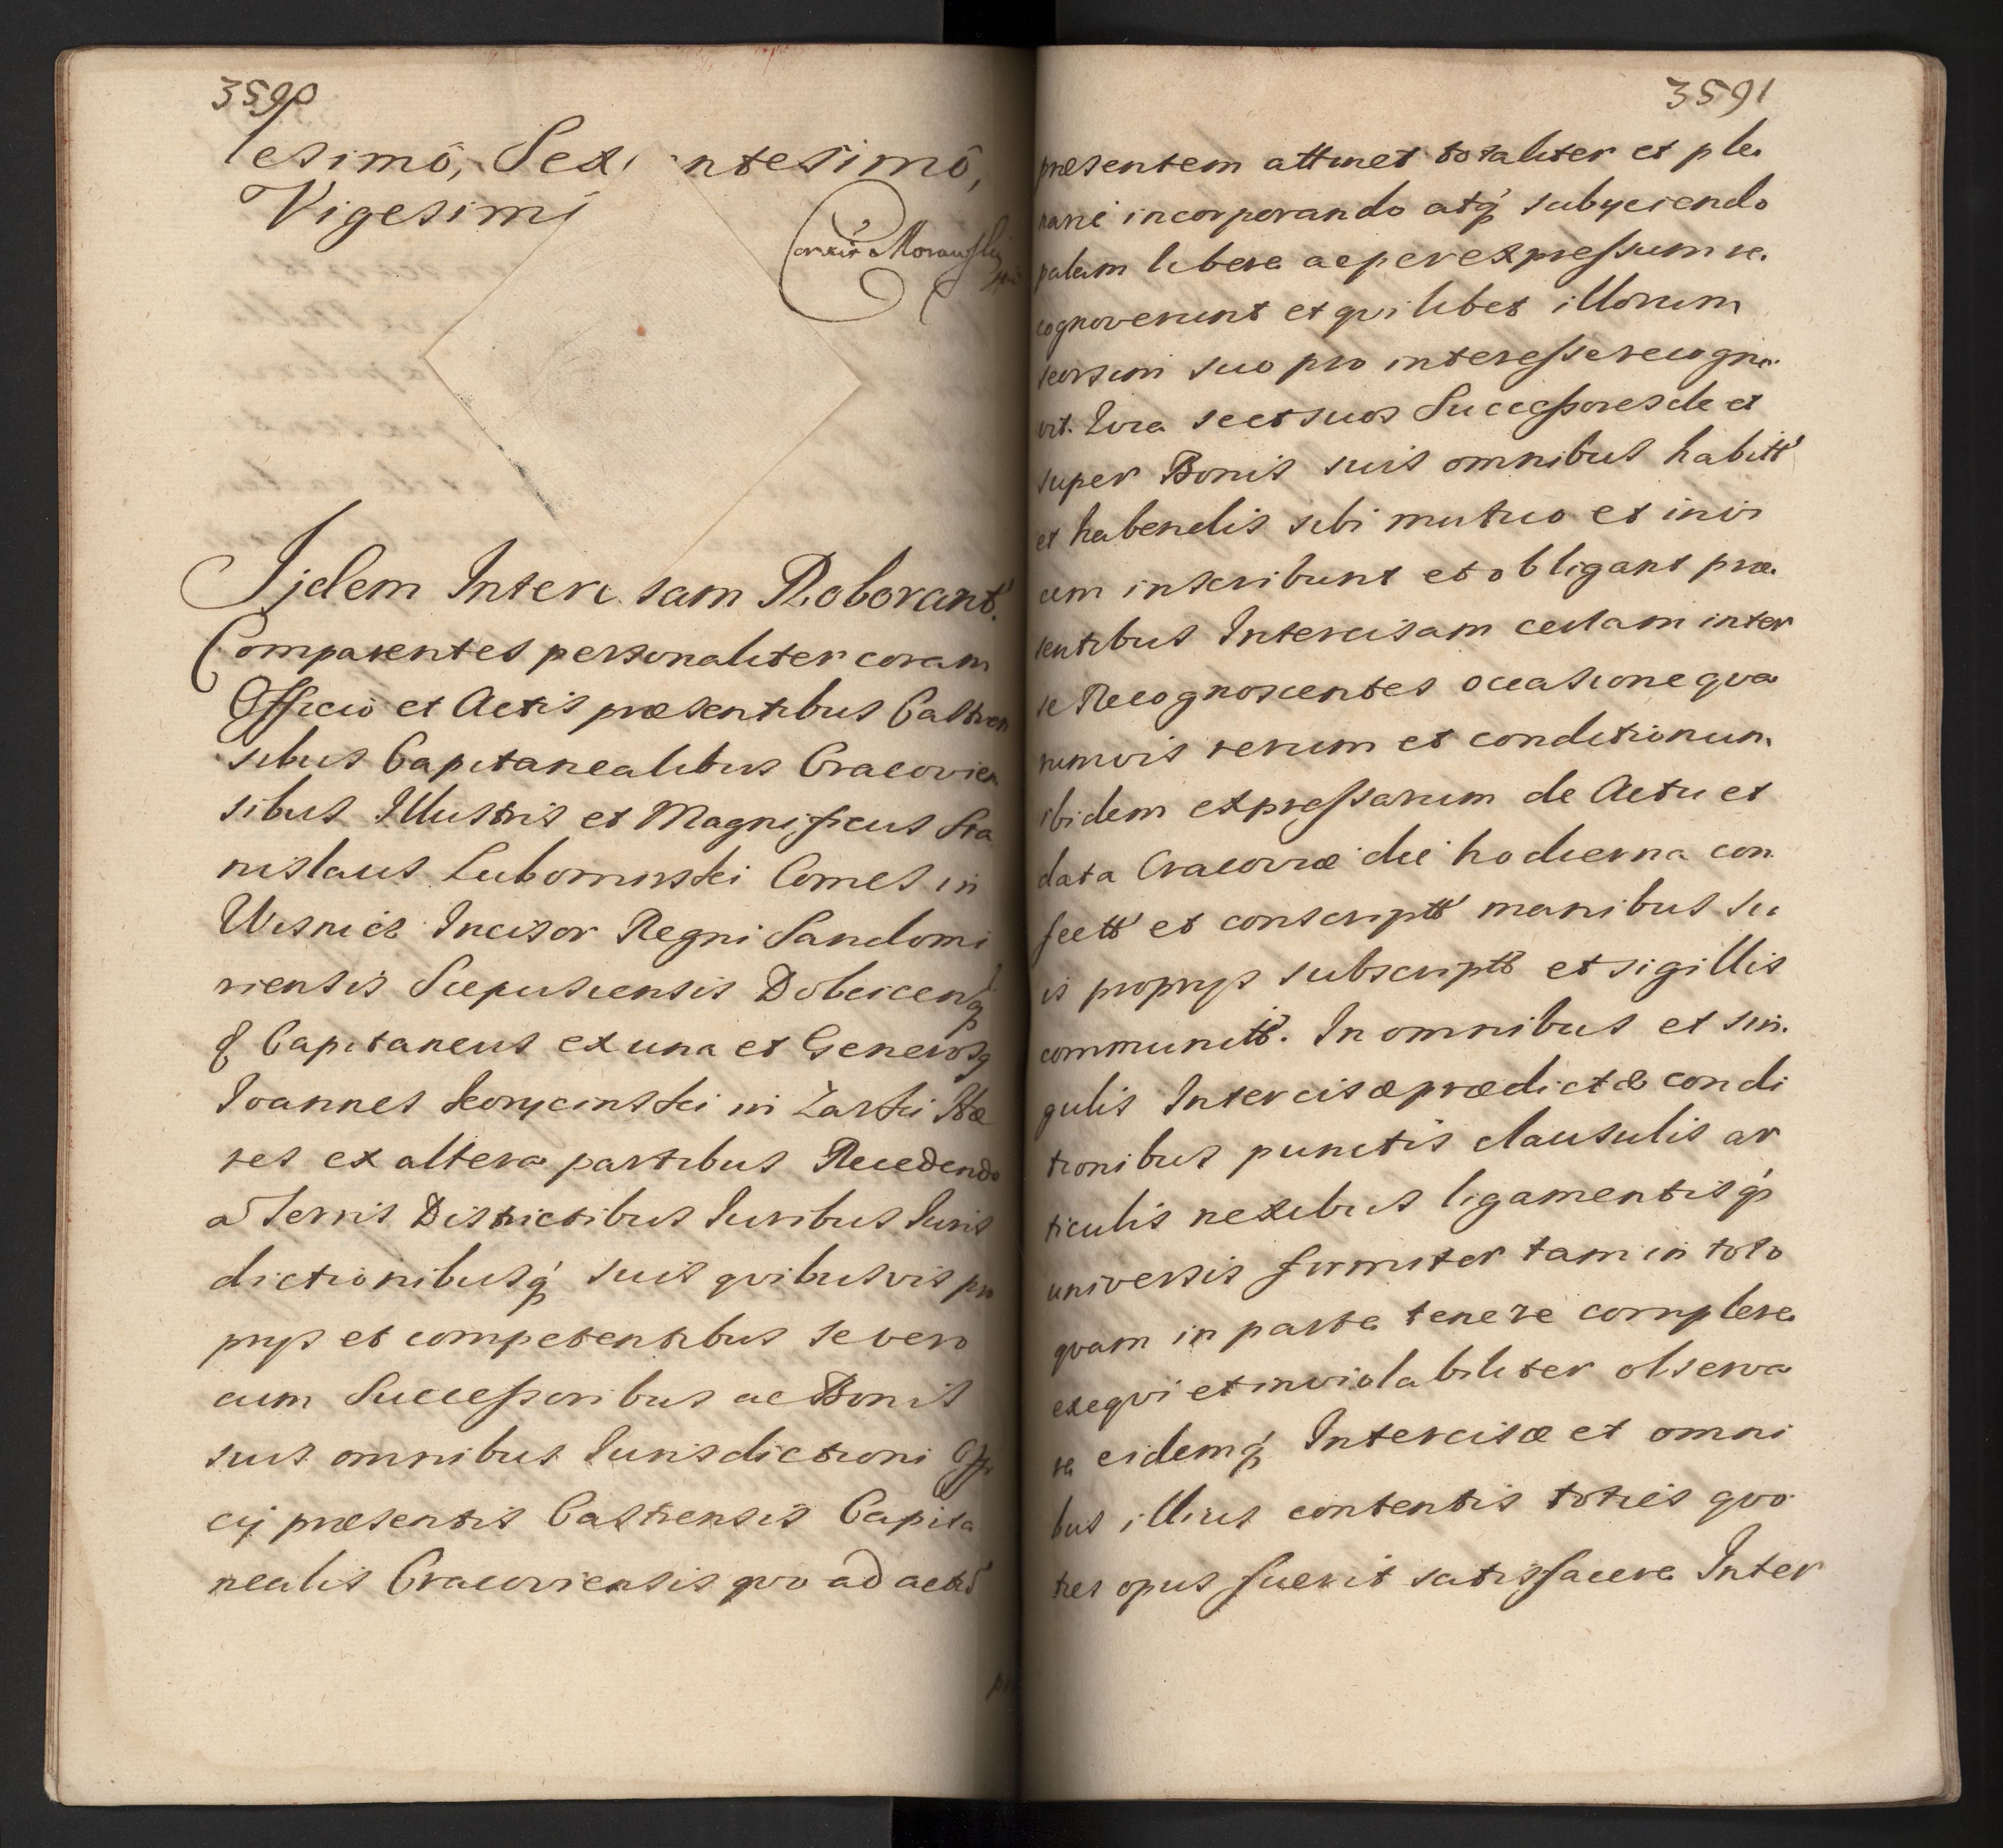 3590
lesimô, Sex ntesimô,
Vigesimi
Correxit Morawski
Ijdem Inter sam Roborant.
Comparentes personaliter coram
Officio et Actis præsentibus Castren
sibus Capitanealibus Cracovien
sibus Illustris et Magnificus Sta
nislaus Lubomirski Comes in
Wisnicz Incisor Regni Sandomi
riensis Scepusiensis Dobcicenq́
& Capitaneus ex una et Generosq
Joannes Korycinski in Zarki Hæ
res ex altera partibus Recedendo
a Terris Districtibus Iuribus Iuris
dictionibusq́ suis qvibusvis pro
prys et competentibus se vero
cum Successoribus ac Bonis
suis omnibus Iurisdictioni Offi
cij præsentis Castrensis Capita
nealis Cracoviensis qvo ad actũ
3591
præsentem attinet totaliter et ple.
narie incorporando atq́ subyciendo
palam libere ac per expressum re.
cognoverunt et qvilibet illorum
seorsim suo pro interesse recogno.
vit. Qvia se et suos Successores de et
super Bonis suis omnibus habitt'
et habendis sibi mutuo et invi
cem inscribunt et obligant præ.
sentibus Intercisam certam inter
se Recognoscentes occasione qva
rumvis rerum et conditionum
ibidem expressarum de Actu et
data Cracoviæ die hodierna con
fectt' et conscriptt' manibus su
is proprys subscriptt et sigillis
communitt'. In omnibus et sin.
gulis Intercisæ prædictæ condi
tionibus punctis clausulis ar
ticulis nexibus ligamentisq́
universis firmiter tam in toto
qvam in parte tenere complere
exeqvi et inviolabiliter observa
re eidemq́ Intercisæ et omni
bus illius contentis toties qvo
ties opus fuerit satisfacere Inter